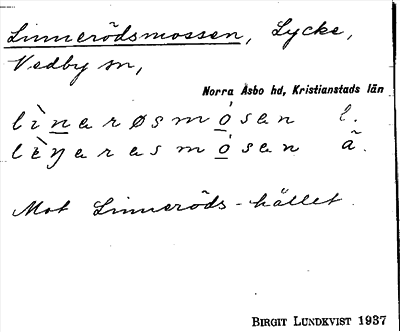 Linnerödsmossen, Lycke,
Vedby sn,
Norra Åsbo hd, Kristianstads län
lìnarøsmósan l.
Mot Linneröds-hållet.
BIRGIT LUNDKVIST 1937